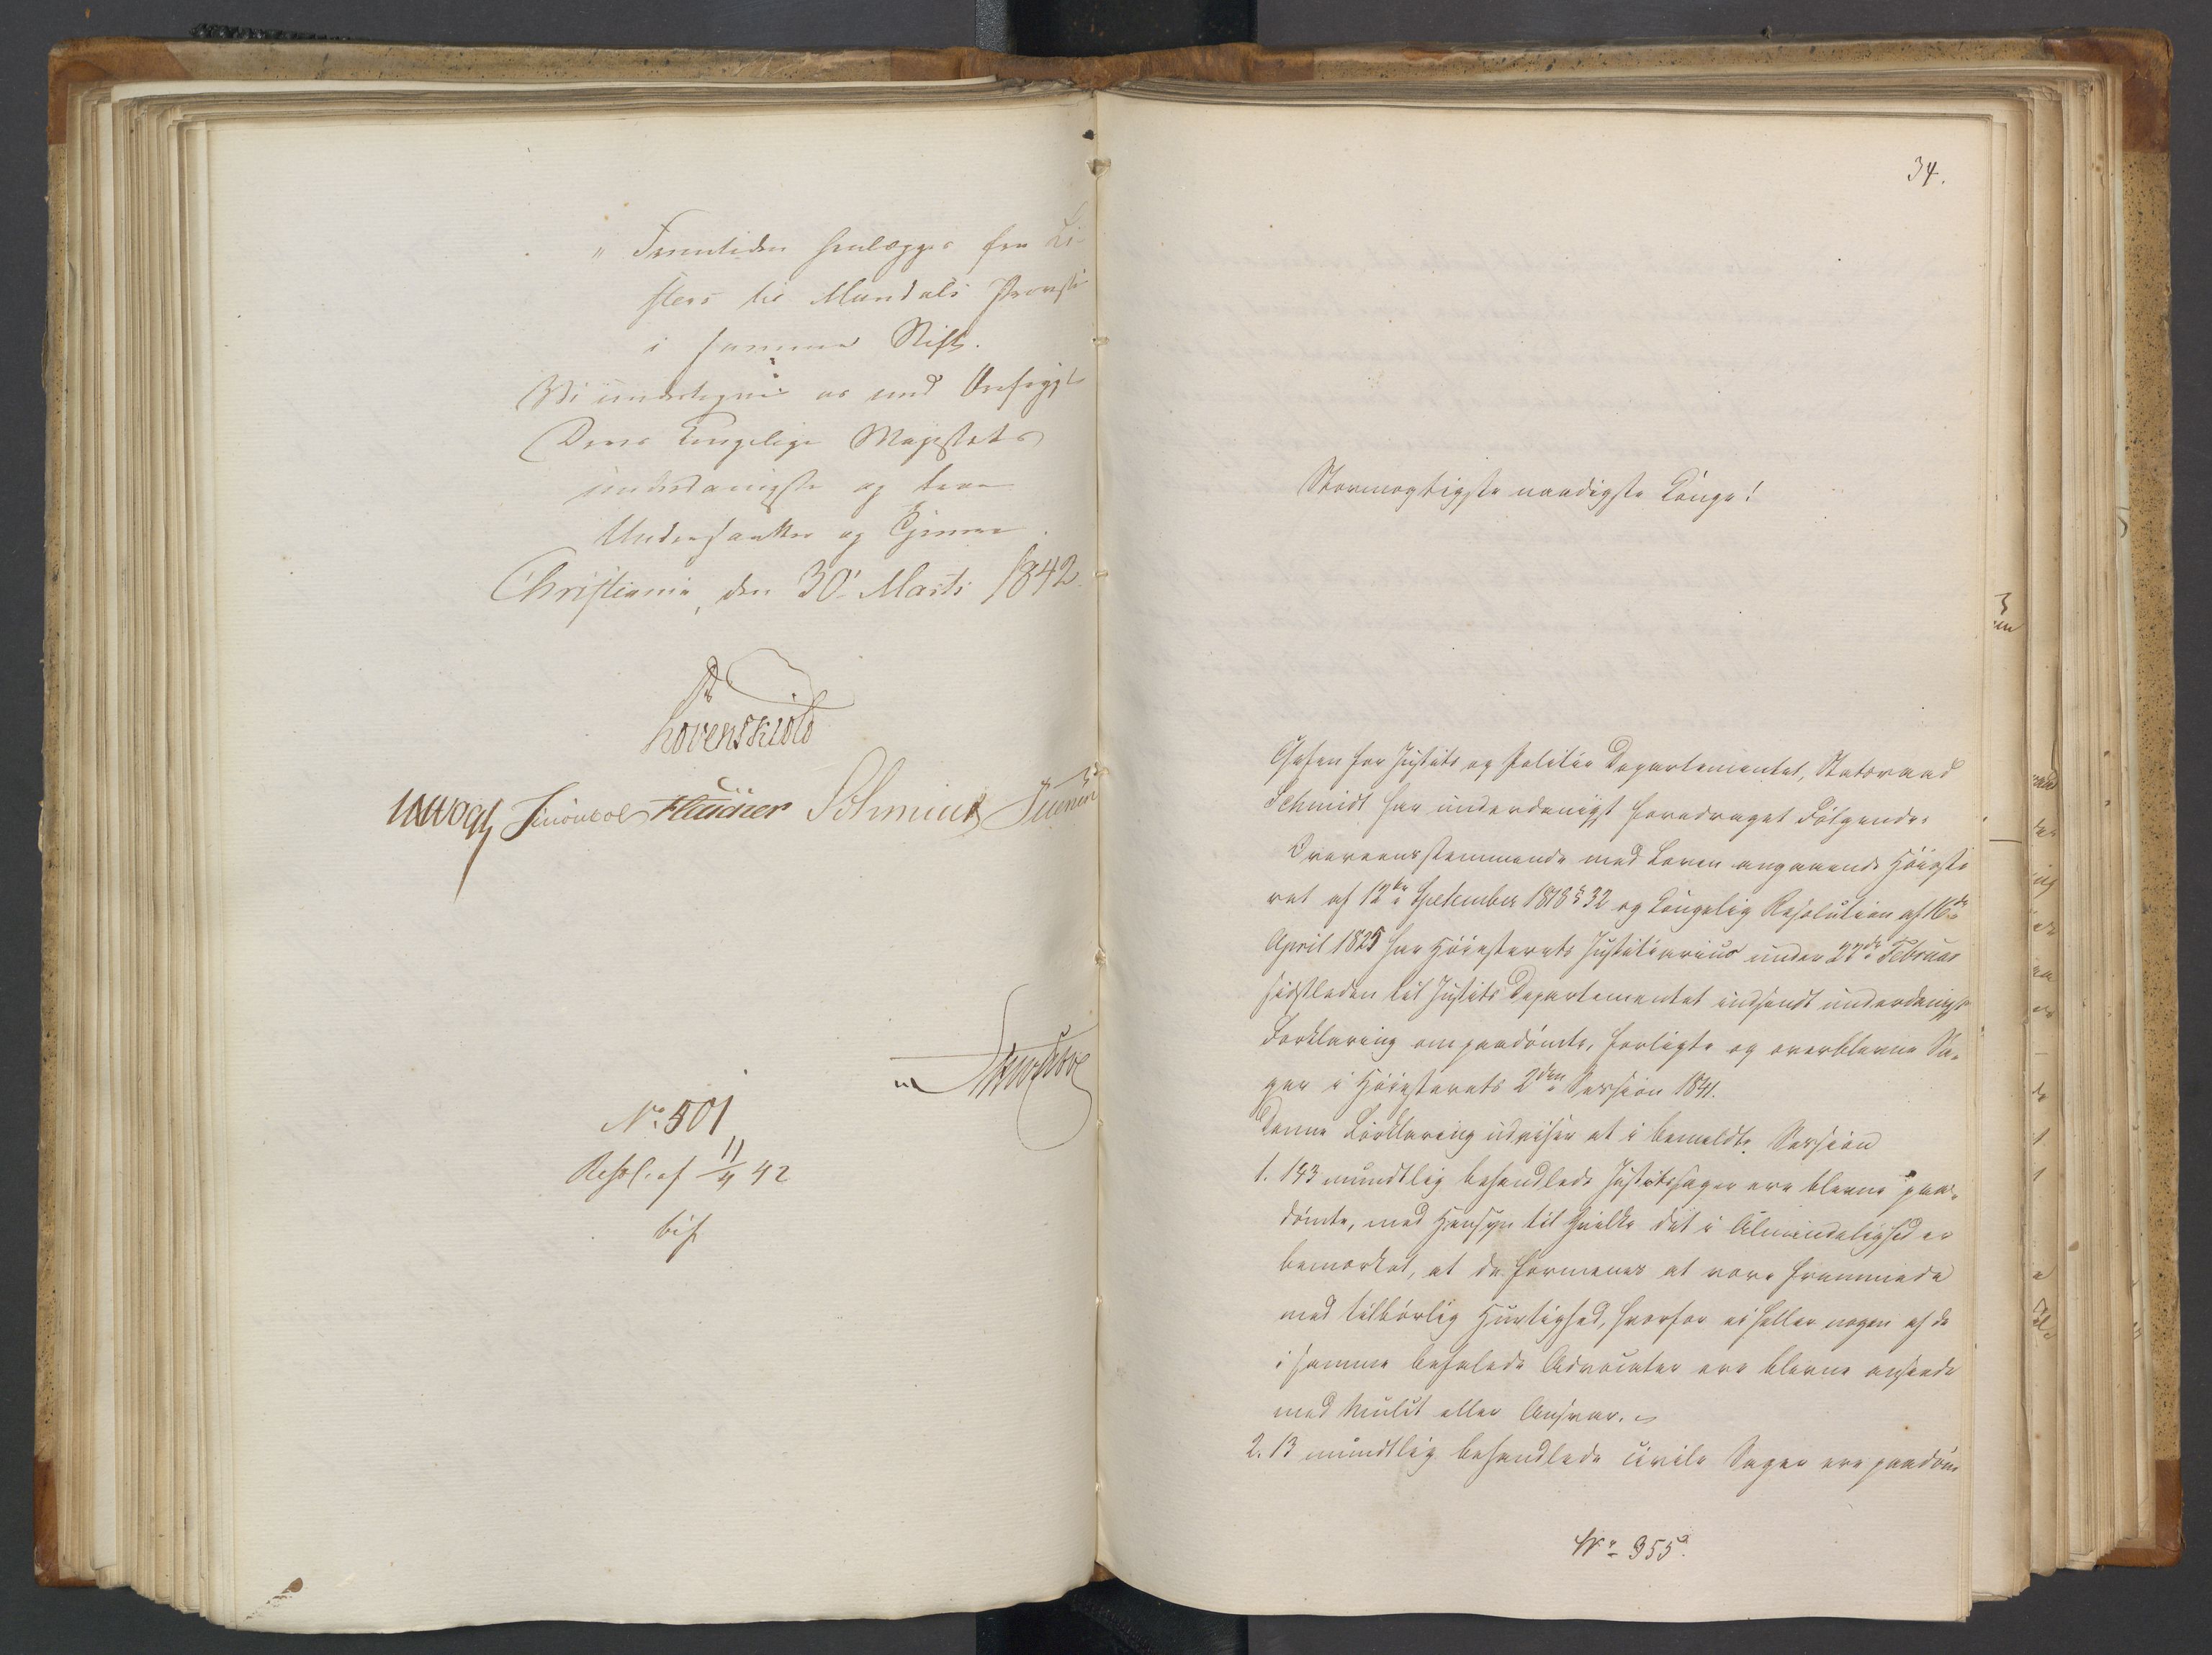 " Fremtiden henlægges fra Li-
sters til Mandals Provsti
i samme Stift.
Vi undertegne os med Ærefrygt
Deres Kongelige Majestæts
underdanigste og troe
Undersaatter og Tjenere
Christiania, den 30te Marts 1842.
Løvenskiold
Vogt Hauner Schmidt
No 501
Resol. af 11/4 42
bif
34.
Stormægtigste naadigste Konge!
Chefen for Justits og Politie Departementet, Statsraad
Schmidt har underdanigst foredraget Følgende:
Overeensstemmende med Loven angaaende Høieste
ret af 12te September 1818 § 32 og Kongelig Resolution af 16de
April 1825 har Høiesterets Justitiarius under 22de Februar
sidstleden til Justits Departementet indsendt underdanigst
Forklaring om paadømte, forligte og overblevne Sa-
ger i Høiesterets 2den Session 1841.
Denne Forklaring udviser at i bemeldte Session
1. 143 mundtlig behandlede Justitssager ere blevne paa-
dømte, med Hensyn til hvilke det i Almindelighed er
bemærket, at de formenes at være fremmede
med tilbørlig Hurtighed, hvorfor ei heller nogen af de
i samme befalede Advocater ere blevne ansete
med Mulct eller Ansvar.
2. 13 mundtlig behandlede civile Sager ere paadøm-
No 355.